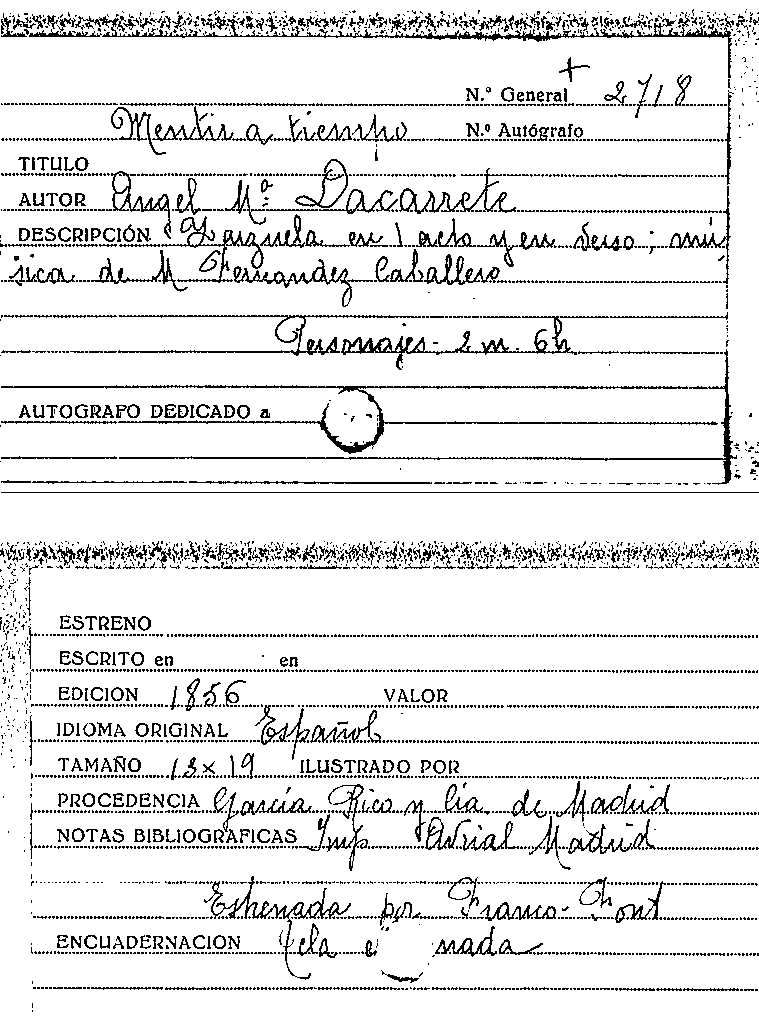 +
N.º General 2718
Mentir a tiempo N.º Autógrafo
TITULO
AUTOR Angel Mª Dacarrete
DESCRIPCIÓN Zarzuela en 1 acto y en verso; mú
sica de M Fernandez Caballero
Personajes- 2 m. 6 h.
AUTOGRAFO DEDICADO a
ESTRENO
ESCRITO en en
EDICION 1856 VALOR
IDIOMA ORIGINAL Español
TAMAÑO 13 x 19 ILUSTRADO POR
PROCEDENCIA García Rico y Cia. de Madrid
NOTAS BIBLIOGRAFICAS Imp Madrid
Estrenada por Franco-Font
ENCUADERNACION tela